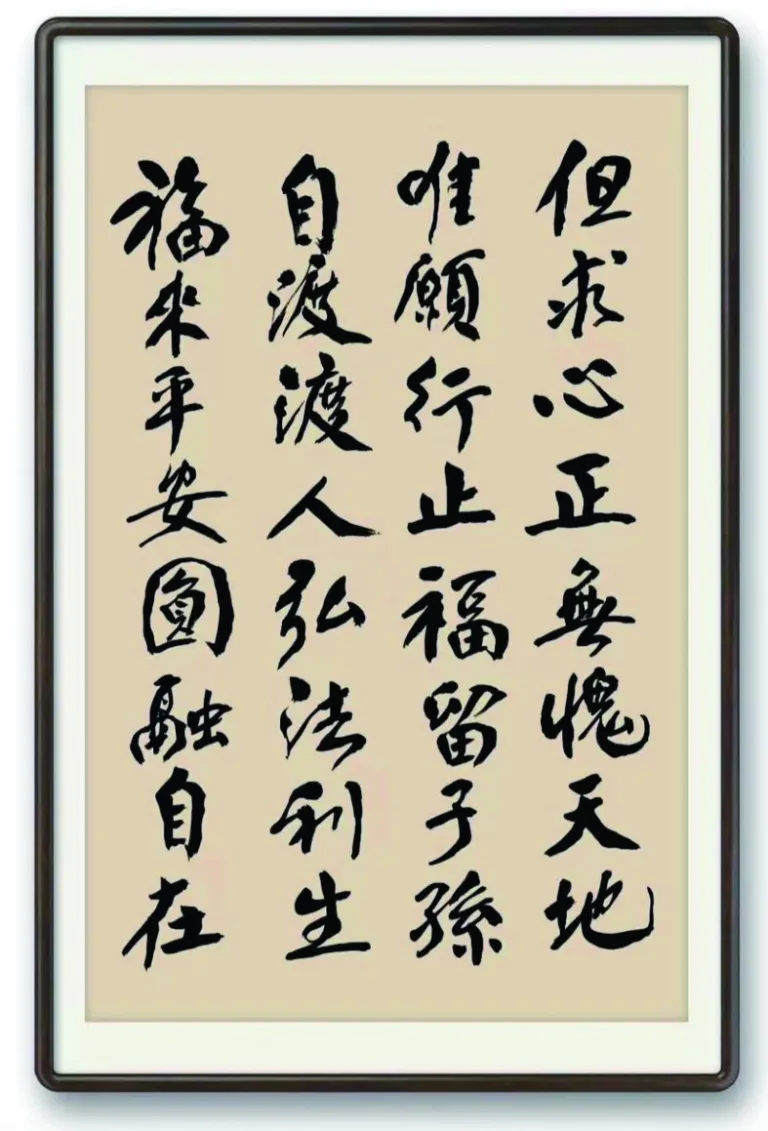 但求心正無愧天地
唯願行止福留子孫
自渡渡人弘法利生
福來平安圓融自在